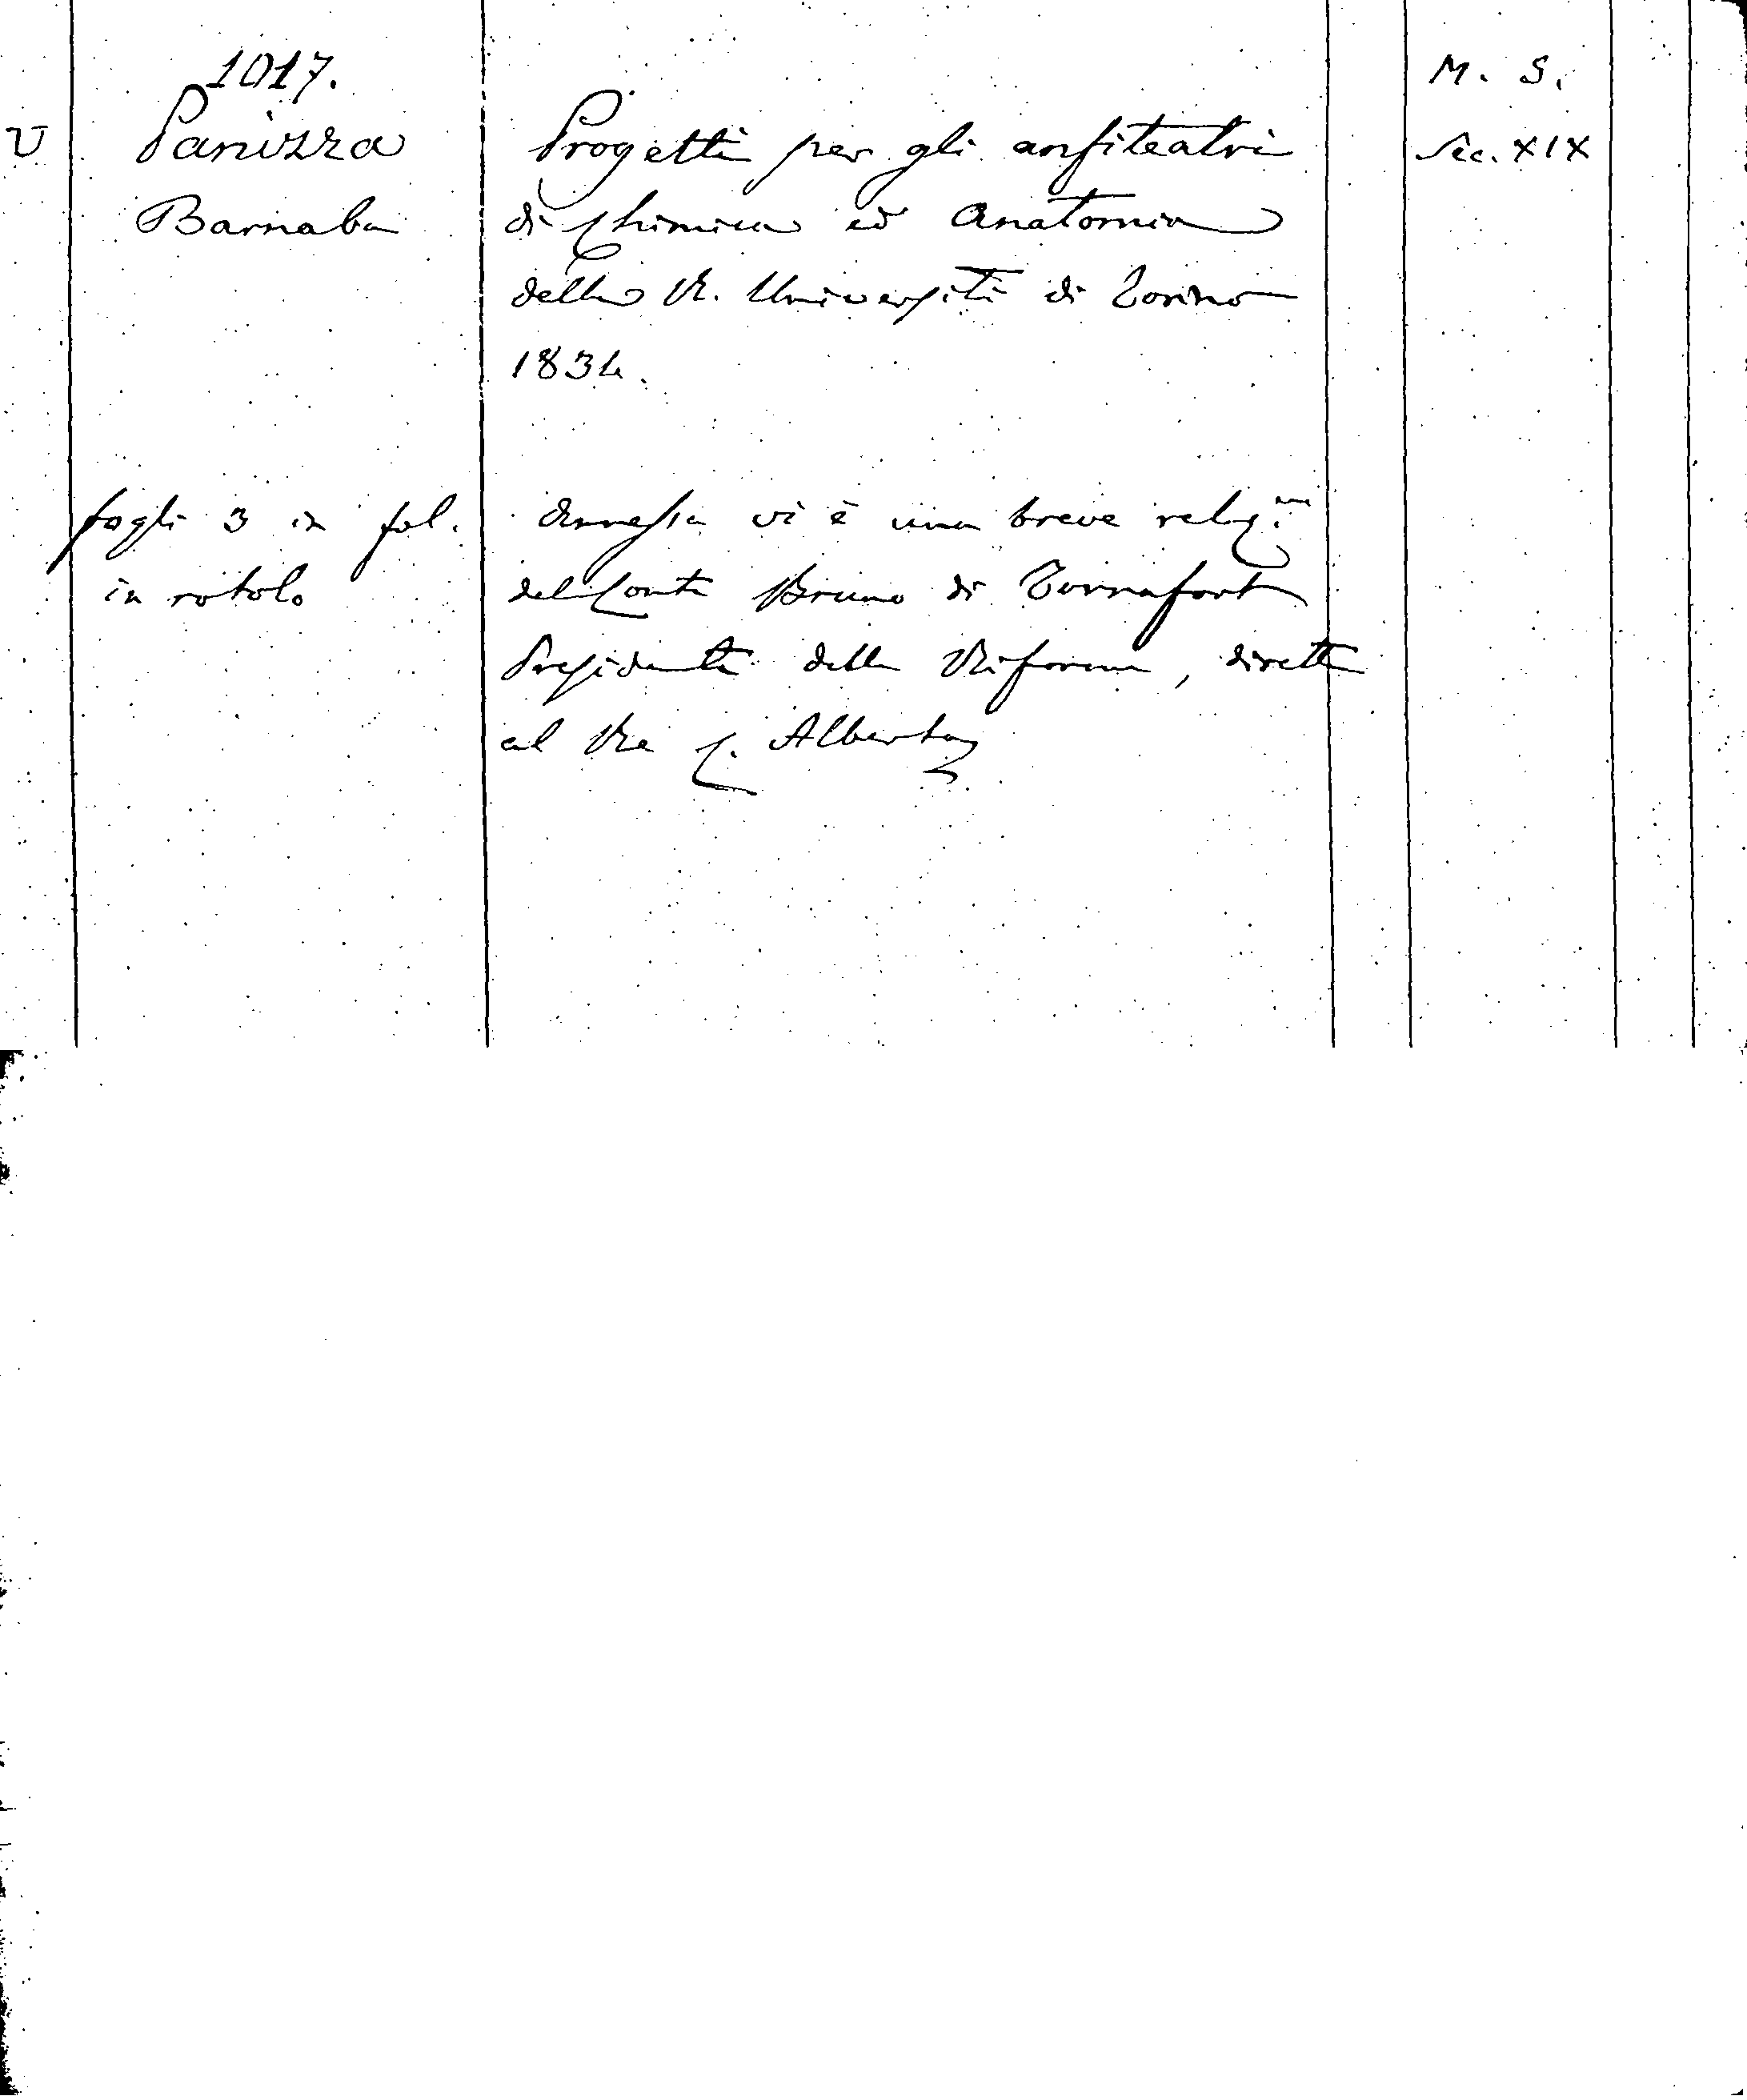 1017.
M. S.
V
Panizza
Progetti per gli anfiteatri
Sec. XIX
Barnaba
di Chimica ed Anatomia
della R. Università di Torino
1834.
fogli 3 in fol.
Annessa vi è una breve relaz.ne
in rotolo
del Conte Bruno di Tornafort
Presidente della Riforma, diretta
al Re C. Alberto